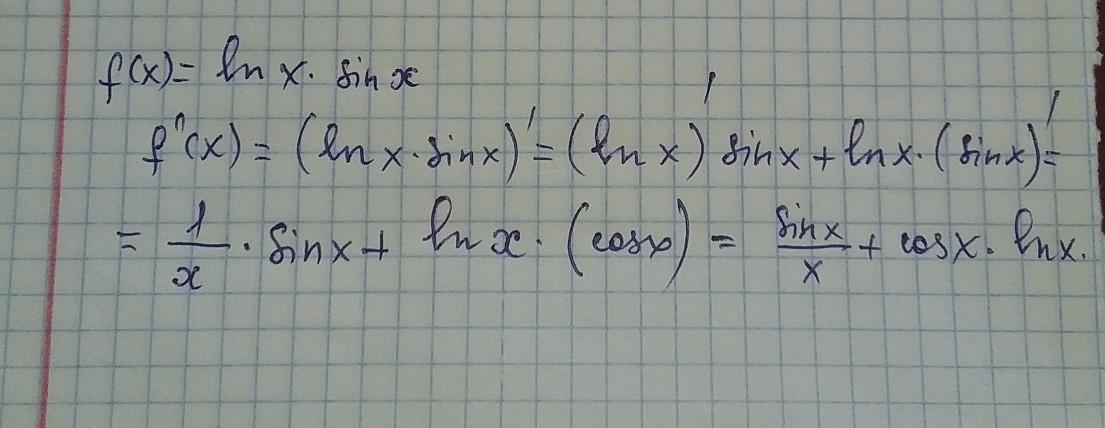 f(x) = ln x · sin x
f'(x) = (ln x · sin x)' = (ln x)' sin x + ln x · (sin x)' =
= 1/x · sin x + ln x · (cos x) = sin x/x + cos x · ln x.